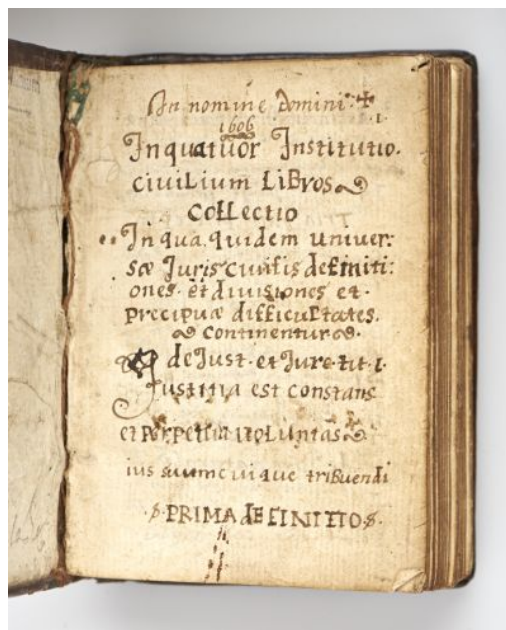 In nomine Domini ✠
1606
In quatuor Institutio.
civilium Libros
Collectio
In qua quidem univer:
sæ Juris civilis definiti:
ones et divisiones et
precipuæ difficultates.
continentur
de Just. et Jure tit. 1.
Justitia est constans
et perpetua voluntas
ius suum cuique tribuendi
PRIMA dEFINITIO